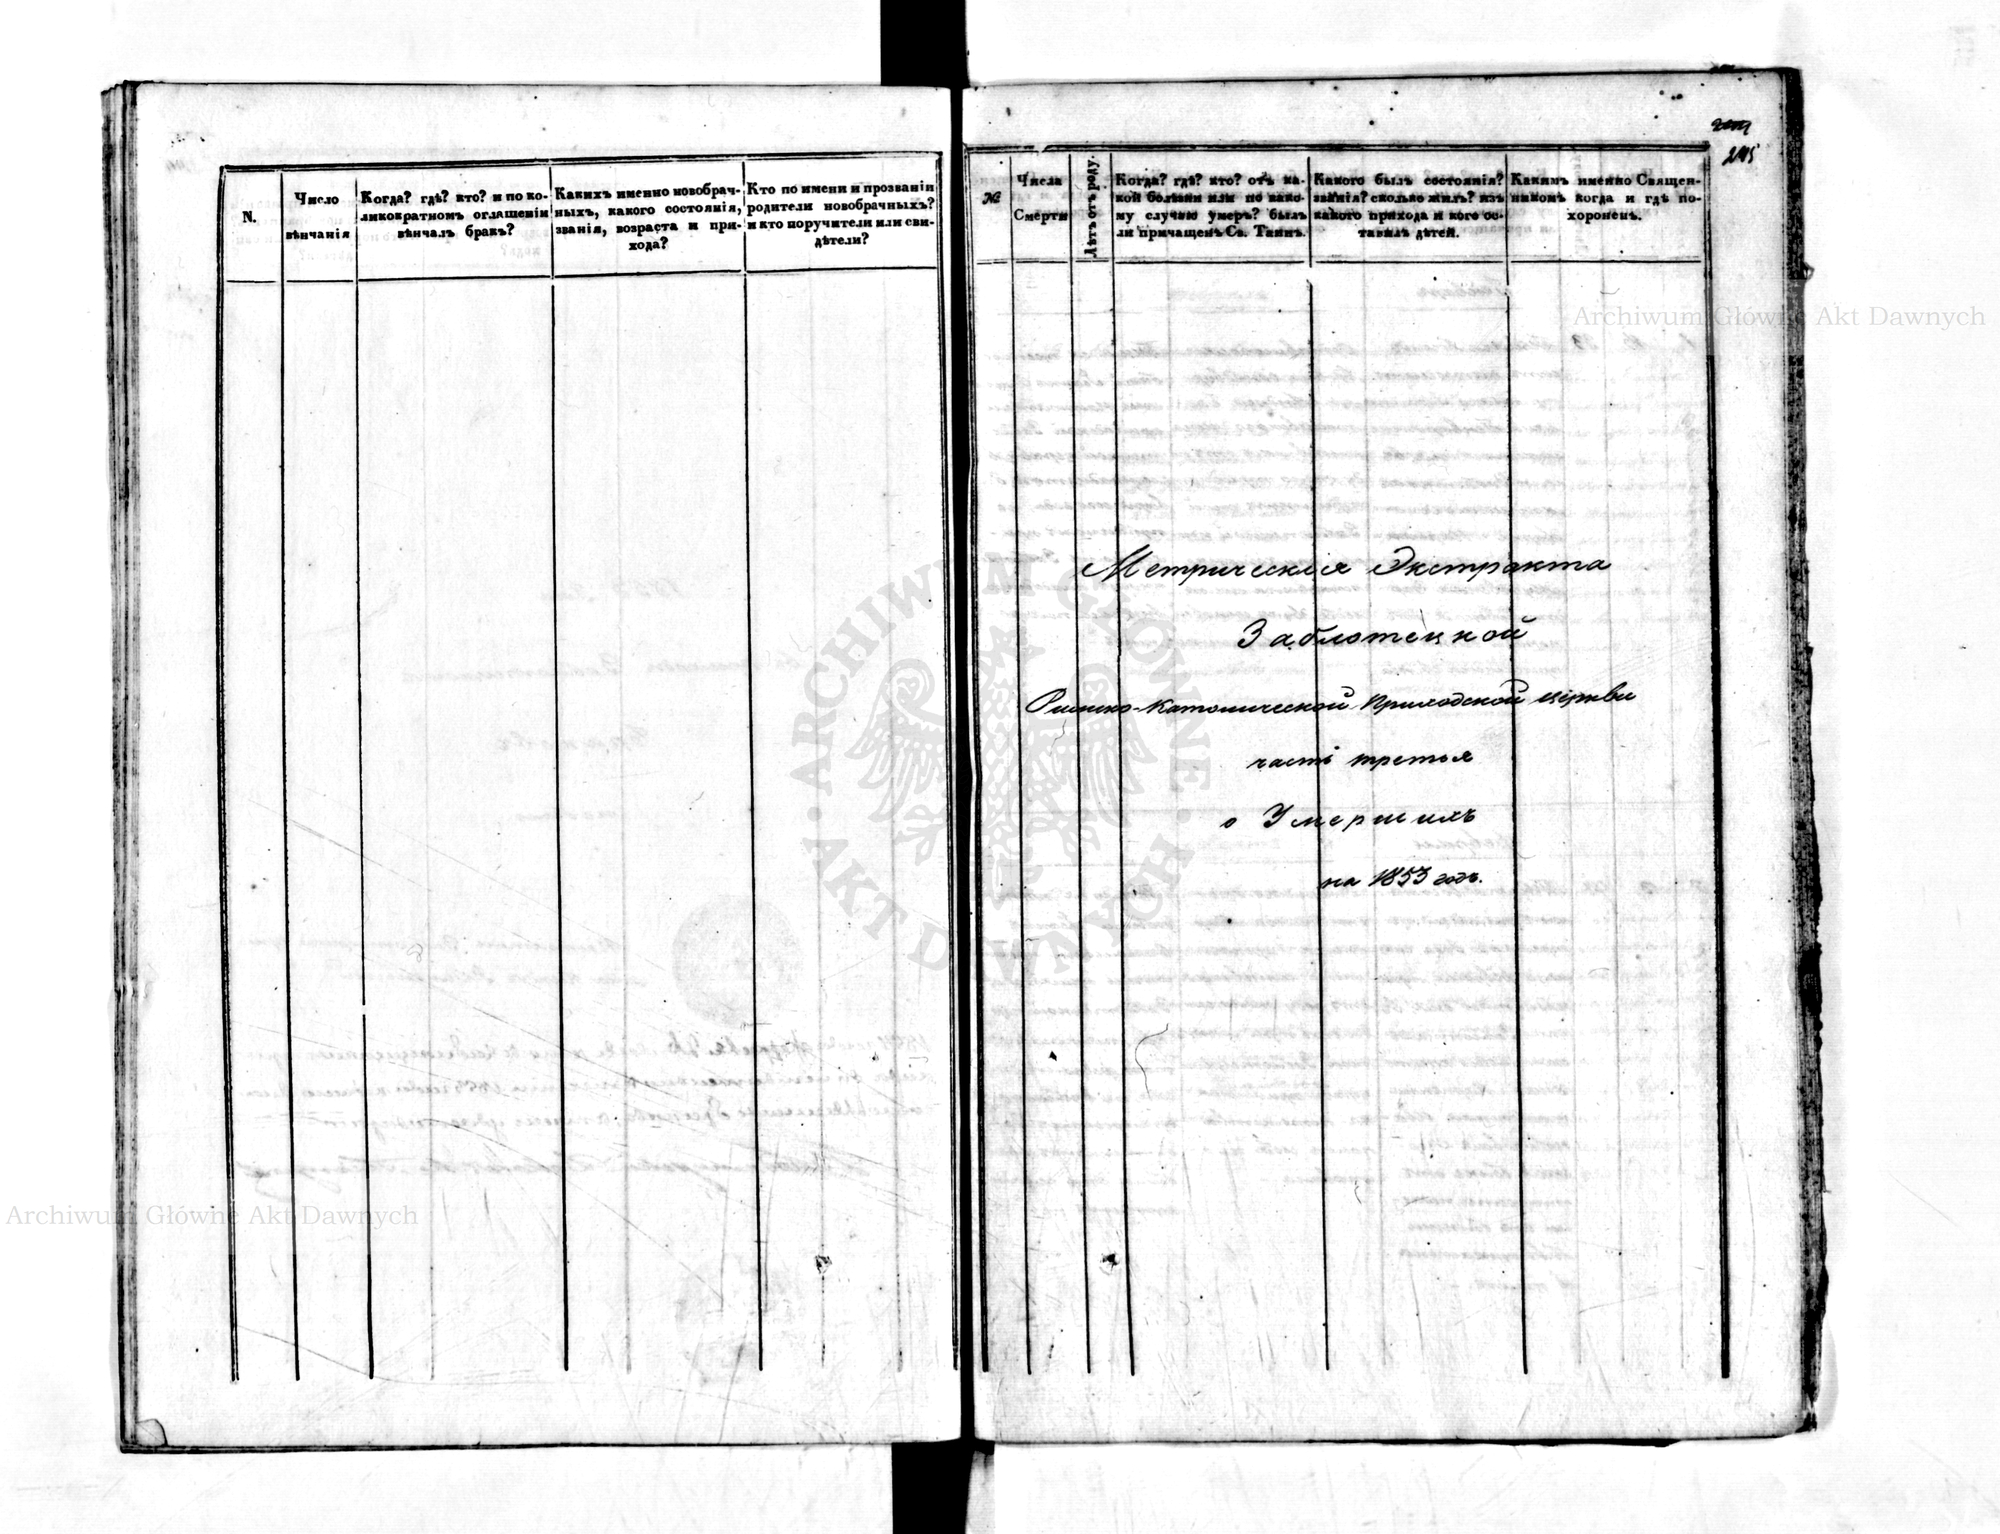 N.
Число
вѣнчанія
Когда? гдѣ? кто? и по ко-
ликократномъ оглашеніи
вѣнчалъ бракъ?
Какихъ именно новобрач-
ныхъ, какого состоянія,
званія, возраста и при-
хода?
Кто по имени и прозванію
родители новобрачныхъ?
и кто поручители или сви-
дѣтели?
№
Числа
Смерти
Лѣтъ отъ роду.
Когда? гдѣ? кто? отъ ка-
кой болѣзни или по како-
му случаю умеръ? былъ
ли причащенъ Св. Таинъ.
Какого былъ состоянія?
званія? сколько жилъ? изъ
какого прихода и кого ос-
тавилъ дѣтей.
Какимъ именно Священ-
никомъ когда и гдѣ по-
хороненъ.
245
Метрическія Экстракта
Заблотецкой
Римско-Католической Приходской церкви
часть третья
о Умершихъ
на 1853 годъ.
Archiwum Główne Akt Dawnych
Archiwum Główne Akt Dawnych
ARCHIWUM GŁÓWNE
AKT DAWNYCH